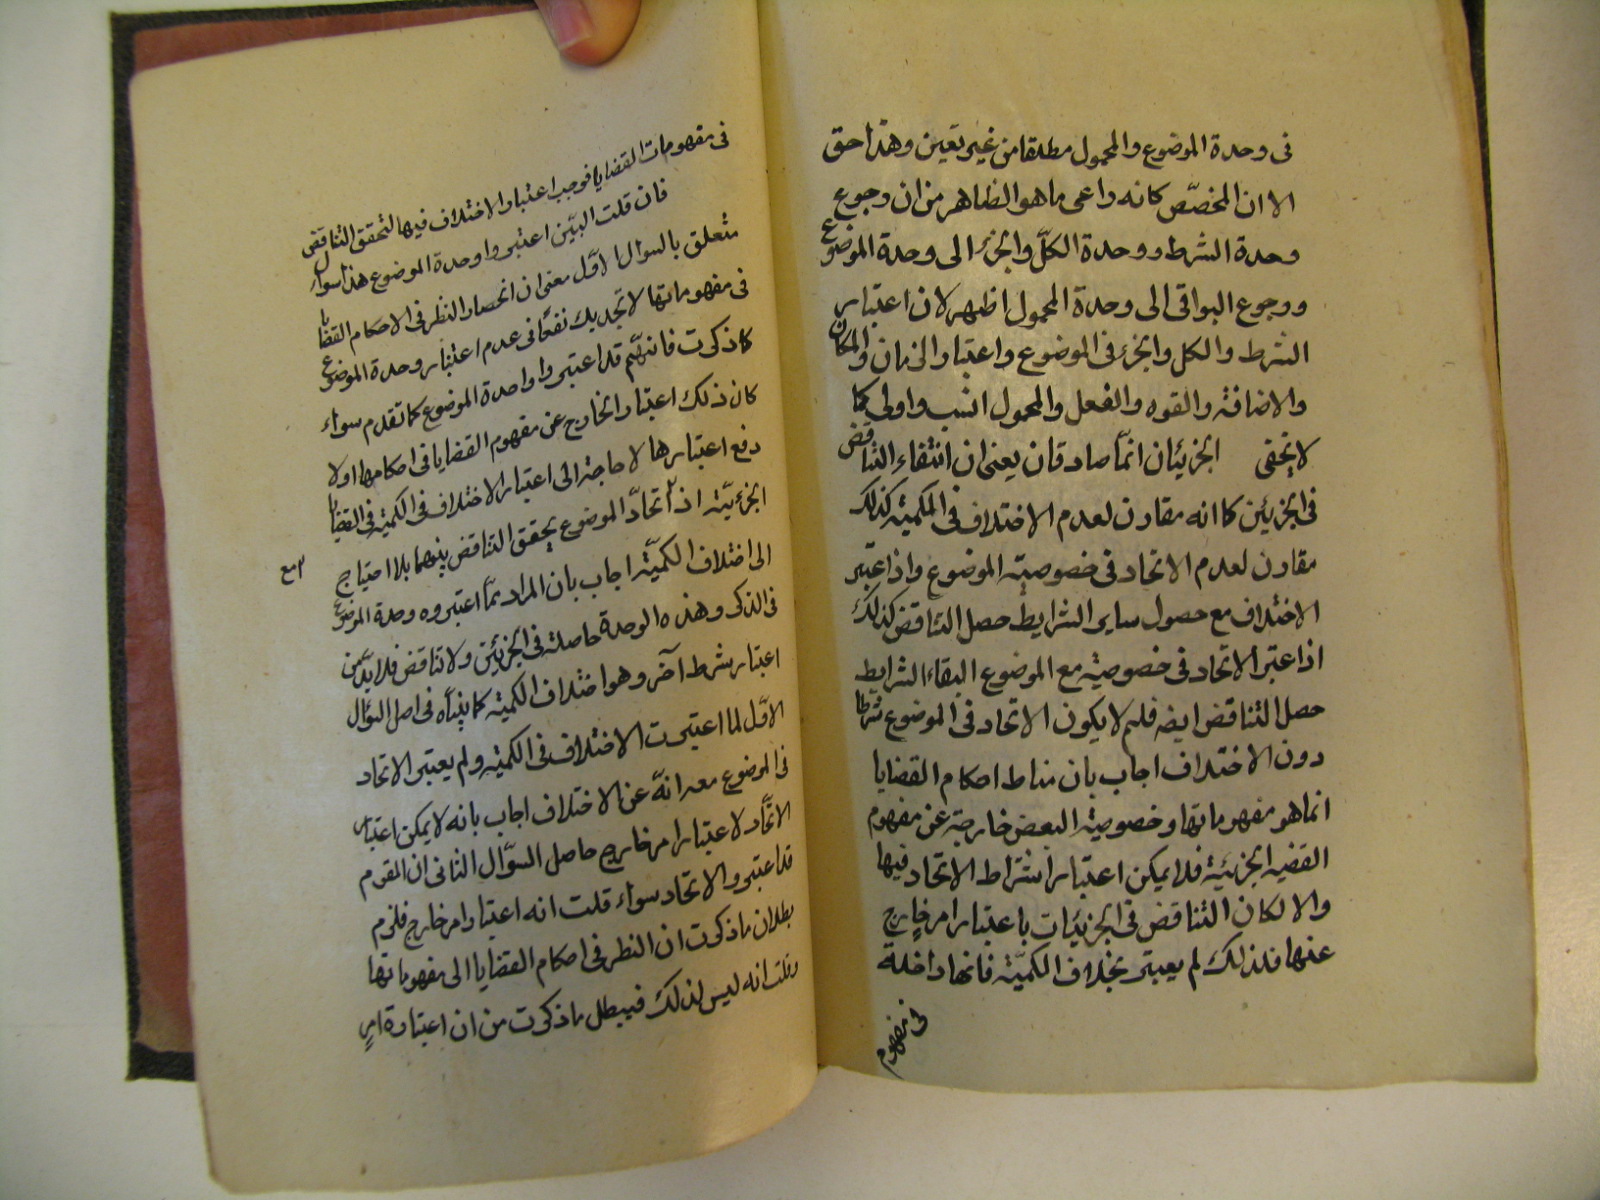 فى وحدة الموضوع والمحمول مطلقا من غير تعين وهذا حق
الا ان المخصّص كانه داعى ما هو الظاهر من ان رجوع
وحدة الشرط ووحدة الكلّ والجزء الى وحدة الموضوع
ورجوع البواقى الى وحدة المحمول اظهر لان اعتبار
الشرط والكل والجزء فى الموضوع واعتبار الزمان والمكان
والاضافة والقوه والفعل والمحمول انسب واولى كما
لا يخفى الجزئيتان انمّا صادقان يعنى ان انتفاء التناقض
فى الجزئين كما انه مقارن لعدم الاختلاف فى الكمية كذلك
مقارن لعدم الاتحاد فى خصوصية الموضوع واذا عتبر
الاختلاف مع حصول ساير الشرايط حصل التناقض كذلك
اذا عتبر الاتحاد فى خصوصية مع الموضوع البقاء الشرايط
حصل التناقض ايضه فلم لا يكون الاتحاد فى الموضوع شرطا
دون الاختلاف اجاب بان مناط احكام القضايا
انما هو مفهوماتها وخصوصية البعض خارجة عن مفهوم
القضيه الجزئيّة فلا يمكن اعتبار اشتراط الاتحاد فيها
والا لكان التناقض فى الجزئيات باعتبار امر خارج
عنها فلذلك لم يعبتر بخلاف الكميّة فانها داخلة
فى مفهوم
فى مفهومات القضايا فوجب اعتبار الاختلاف فيها لتحقق التناقض
فان قلت البيّن اعتبروا وحدة الموضوع هذا سوال
متعلق بالسوال الاوّل معنى ان انحصار النظر فى الاحكام القضايا
فى مفهوماتها لا تجديك نفعًا فى عدم اعتبار وحدة الموضوع
كما ذكرت فانهّم قد اعتبروا واحدة الموضوع كما تقدم سواء
كان ذلك اعتبار الخارج عن مفهوم القضايا فى احكامها اولا
دفع اعتبارها لا حاجة الى اعتبار الاختلاف فى الكمية فى القضايا
الجزءيّة اذ لاتحادّ الموضوع يحقق التناقض بينهما بلا احتياج
الى اختلاف الكميّة اجاب بان المراد بمّا اعتبروه وحدة الموضوع
مع
فى الذكر وهذه الوحدة حاصلة فى الجزئين ولا تناقض فلا بدّ من
اعتبار بشرط آخر وهو اختلاف الكمية كما بيناه فى اصل السؤال
الاوّل لما اعتبرت الاختلاف فى الكمية ولم يعتبر الاتحاد
فى الموضوع معد انهّ عن الاختلاف اجاب بانه لا يمكن اعتبار
الاتّحاد لاعتبار امر خارج حاصل السوّال الثانى ان القوم
قد اعتبروا الاتحاد سواء قلت انه اعتبار امر خارج فلزم
بطلان ما ذكرت ان النظر فى احكام القضايا الى مفهوماتها
وقلت انه ليس لذلك فيبطل ما ذكرت من ان اعتباره امر